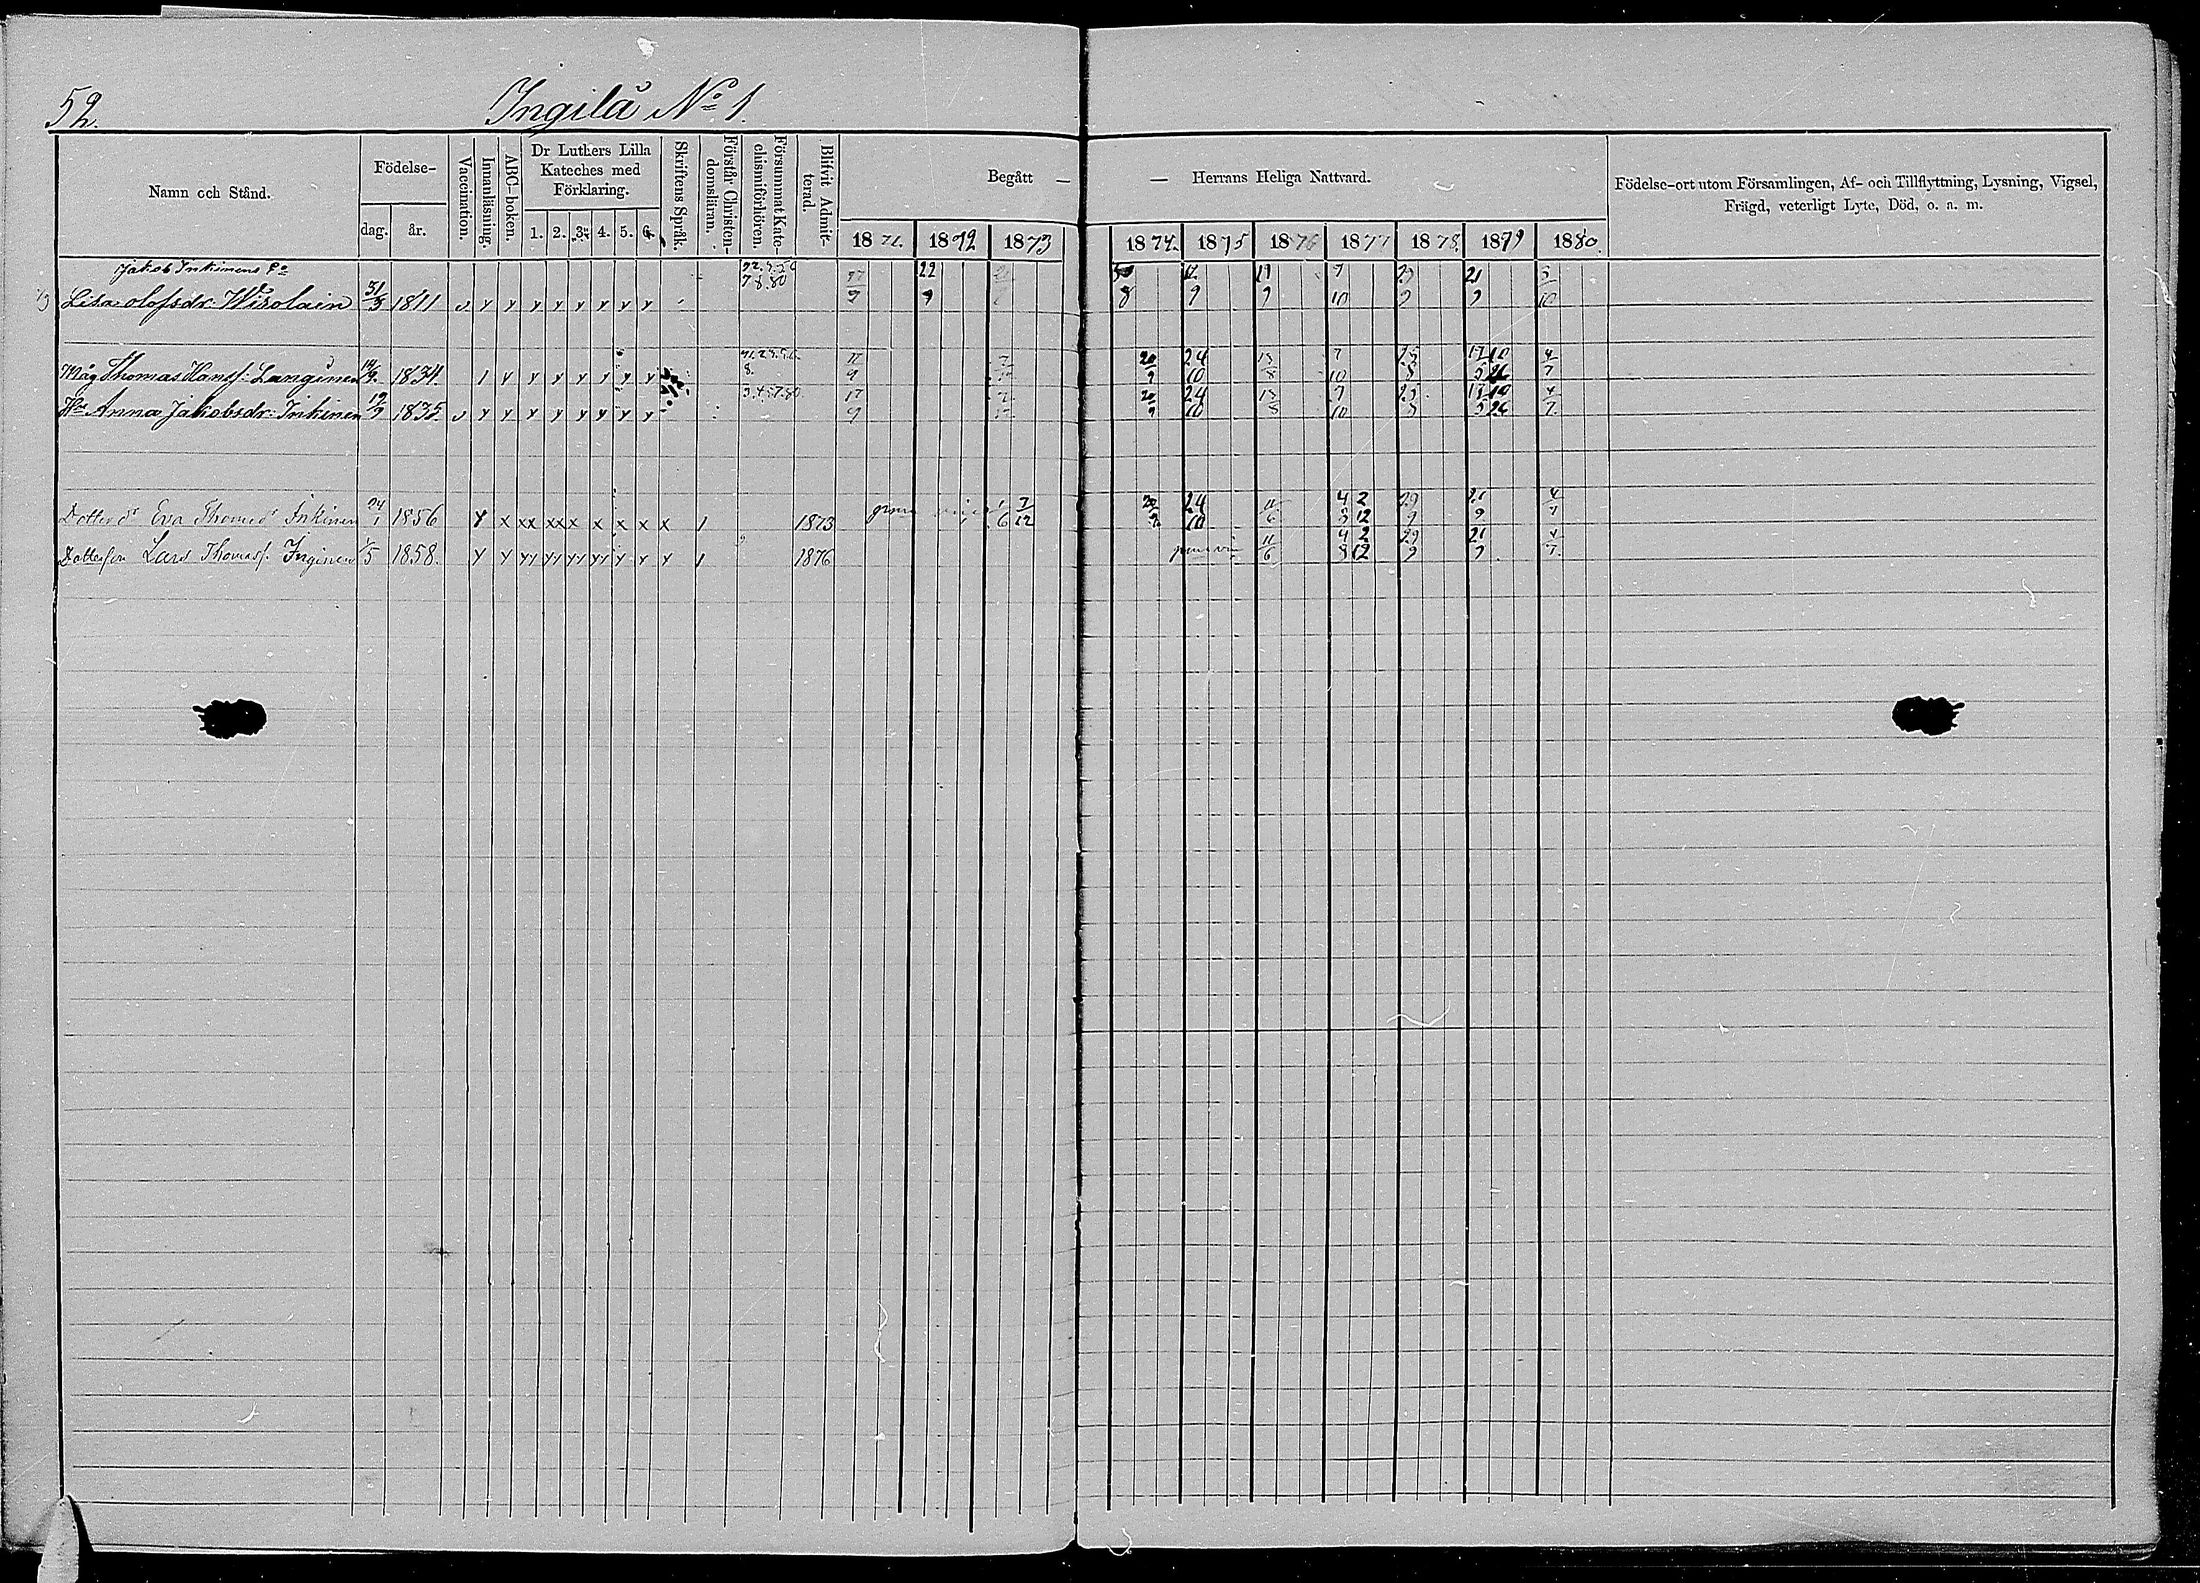 52.
Ingilä No 1.
Namn och Stånd.
Födelse-
dag. år.
Vaccination.
Innanläsning.
ABC-boken.
Dr Luthers Lilla
Kateches med
Förklaring.
1. 2. 3. 4. 5. 6.
Skriftens Språk.
Förstår Christen-
domsläran.
Försummat Kate-
chismiförhören.
Blifvit Admit-
terad.
Begått —
— Herrans Heliga Nattvard.
1871. 1872 1873 1874. 1875 1876 1877 1878. 1879 1880.
Födelse-ort utom Församlingen, Af- och Tillflyttning, Lysning, Vigsel,
Frägd, veterligt Lyte, Död, o. a. m.
Jakob Inkinens
7 8.80 22
Lisa olofsdr: Wisolain 31/3 1811 v y y y y y y y y 9 8 9 9 10 9 9 10
Måg Thomas Hansf: Langinen 1834. 1 y y y y y y y 20/9 24/10 13/8 7/10 4/7
Hu Anna Jakobsdr: Inkinen 19/9 1835. v y y y y y y y y 17/9 20/9 24/10 13/8 7/10 4/7
Dotterdr Eva Thomedr Inkinen 24/1 1856 y x xx xx x x x x x 1 1873 7/12 20/9 24/10 11/6 4/3 2/12 29/9 21/9 4/7
Dotterson Lars Thomasf. Inginen 1/5 1858. y y yy yy yy yy y y y 1 1876 11/6 4/3 2/12 29/9 21/9 4/7